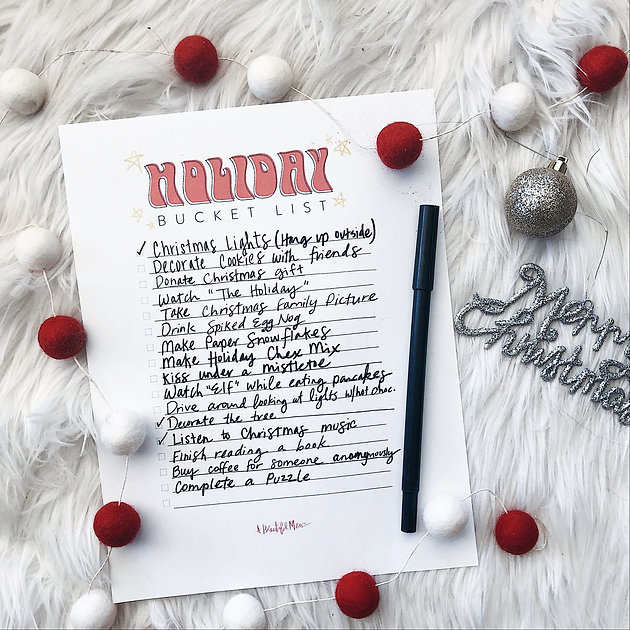 HOLIDAY
BUCKET LIST
✓ Christmas Lights (Hang up outside)
Decorate Cookies with friends
Donate Christmas gift
Watch "The Holiday"
Take Christmas Family Picture
Drink Spiked Egg Nog
Make Paper Snowflakes
Make Holiday Chex Mix
Kiss under a mistletoe
Watch "Elf" while eating pancakes
Drive around looking at lights w/hot choc.
✓ Decorate the tree
✓ Listen to Christmas music
Finish reading a book
Buy coffee for someone anonymously
Complete a Puzzle
A Beautiful Mess
Merry
Christmas